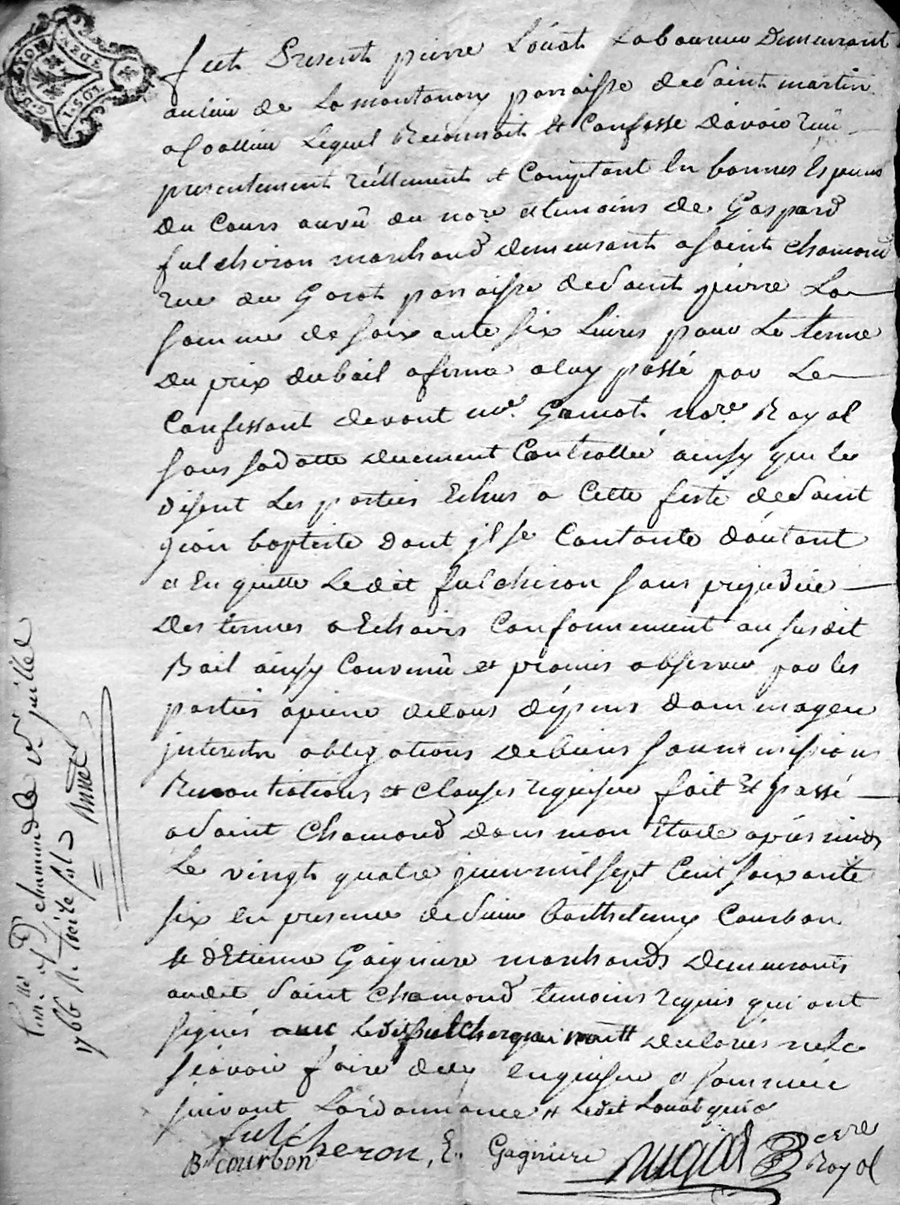 G. DE LYON
DEUX
SOLS
fut Present pierre Louat Laboureur Demeurant
au lieu de La montanory parroisse de Saint martin
a Coallieu Lequel Reconnoit Et Confesse d'avoir Reçu
presentement réellement et Comptant En bonnes Especes
Du Cours au vû du nore et temoins de Gaspard
fulchiron marchand demeurant a Saint chamond
rue du Garat parroisse de Saint pierre La
somme de soixante six Livres pour Le terme
Du prix du bail a ferme a luy passé par Le
Confessant devant me. Gamot nore. Royal
sous sa datte duement Controllée ainsy que Le
disent Les parties Echus a Cette feste de Saint
jean baptiste dont jl se Contente d'autant
et En quitte Ledit fulchiron sans prejudice
Des termes a Echoirs Conformement au susdit
Bail ainsy Convenû et promis observer par les
parties a peine de tous dépens dommages
jnterests obligations de biens soummissions
Renontiations et clauses requises fait Et passé
a Saint Chamond dans mon Etude après midy
Le vingt quatre juin mil sept Cent soixante
six En presence de Sieur barthelemy Courbon
& d'Etienne Gaignière marchands demeurants
audit Saint Chamond temoins requis qui ont
signés avec Ledit fulcher qui nont declarés ne le
sçavoir faire de ce Enquise et sommée
suivant Lordonnance # Ledit Louat qui a
fulcheron, E. Gagniere
B courbon
Royal
Conllé a St chamond le 1er juillet
1766 R. treize sols